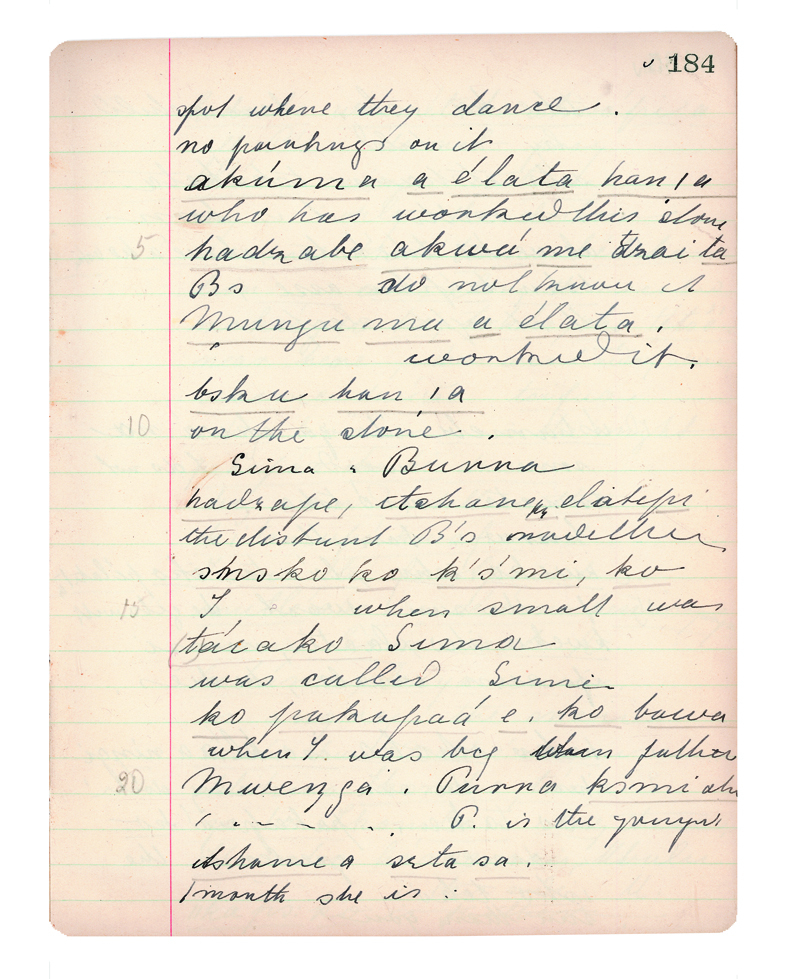 184
spot where they dance.
no paintings on it
akúma a élata han ı a
who has worked this stone
5 hadzabe akwá me tzai ta
Bs do not know it
Mungu ma a élata.
worked it.
bsku han ı a
10 on the stone.
Sima Bunna
hadzape, etshane elatepi
the distant B's
ko k's'mi, ko
15 I when small was
tácako Sima
was called
ko pakapaá e. ko bawa
when I. was big father
20 Mwenga. Punna ksmi
P. is the
etshame a seta sa.
1 month she is